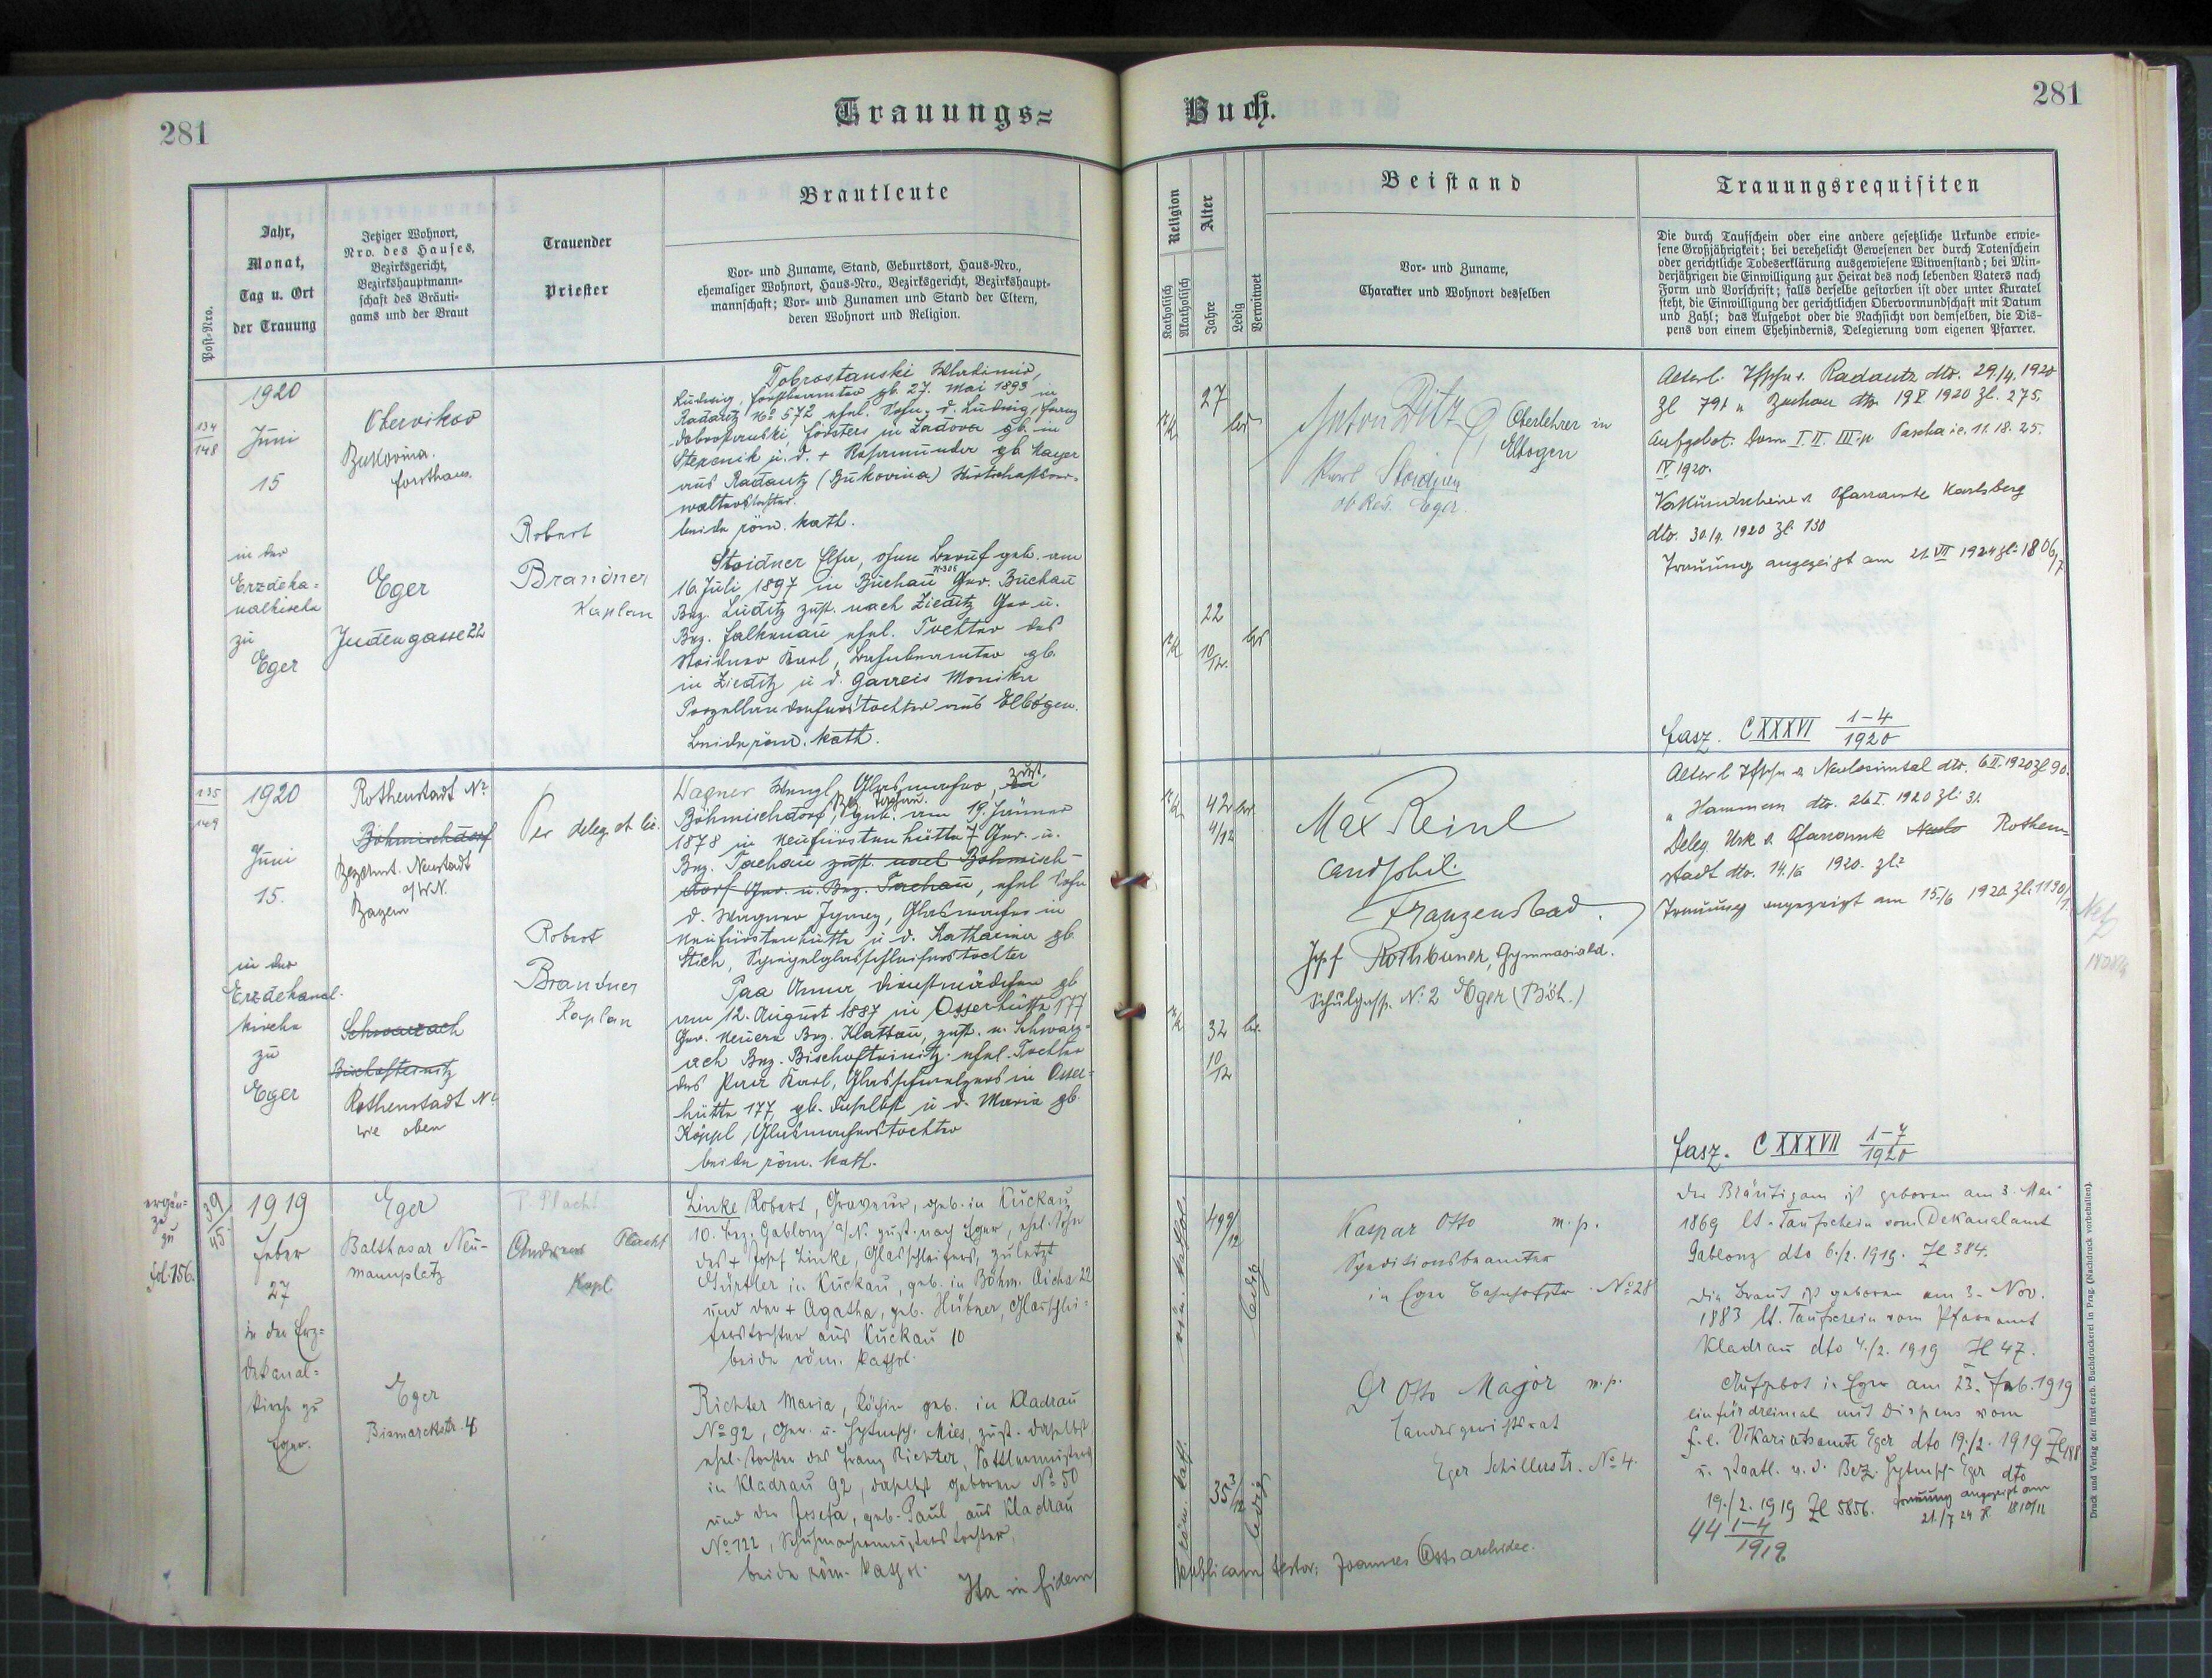 281
Trauungs=
Buch.
281
Post-Nro.
Jahr,
Monat,
Tag u. Ort
der Trauung
Jetziger Wohnort,
Nro. des Hauses,
Bezirksgericht,
Bezirkshauptmann-
schaft des Bräuti-
gams und der Braut
Trauender
Priester
Brautleute
Vor- und Zuname, Stand, Geburtsort, Haus-Nro.,
ehemaliger Wohnort, Haus-Nro., Bezirksgericht, Bezirkshaupt-
mannschaft; Vor- und Zunamen und Stand der Eltern,
deren Wohnort und Religion.
Religion
Katholisch
Akatholisch
Alter
Jahre
Ledig
Verwitwet
Beistand
Vor- und Zuname,
Charakter und Wohnort desselben
Trauungsrequisiten
Die durch Taufschein oder eine andere gesetzliche Urkunde erwie-
sene Großjährigkeit; bei verehelicht Gewesenen der durch Totenschein
oder gerichtliche Todeserklärung ausgewiesene Witwenstand; bei Min-
derjährigen die Einwilligung zur Heirat des noch lebenden Vaters nach
Form und Vorschrift; falls derselbe gestorben ist oder unter Kuratel
steht, die Einwilligung der gerichtlichen Obervormundschaft mit Datum
und Zahl; das Aufgebot oder die Nachsicht von demselben, die Dis-
pens von einem Ehehindernis, Delegierung vom eigenen Pfarrer.
134
148
1920
Juni
15
in der
Erzdeka=
nalkirche
zu
Eger
Oberwikow
Bukovina.
Forsthaus.
Eger
Judengasse 22
Robert
Brandner
Kaplan
Dobrostanski Wladimir,
Ludwig, Forstbeamter gb. 27. Mai 1893 in
Radautz No 572 ehel. Sohn d. Ludwig, Franz
Dobrostanski, Försters in Zadova gb. in
u. d. + Rosamunda gb. Kayer
aus Radautz (Bukovina) Wirtschaftsver-
walterstochter.
beide röm. kath.
Stoidner Elsa, ohne Beruf geb. am
16. Juli 1897 in Buchau N-308 Ger. Buchau
Bez. Luditz zust. nach Zieditz Ger u.
Bez. Falkenau ehel. Tochter des
Stoidner Karl, Bahnbeamter gb.
in Zieditz u d. Garreis Monika
Porzellandrehers tochter aus Elbogen.
Beide röm. kath.
27
led
22
10/12.
led
Anton Ditz, Oberlehrer in
Elbogen
Karl Stoidner
Eger.
Alter l. Tfschn v. Radautz dto. 29/4. 1920
Zl 791 " Buchau dto 19 V. 1920 Zl. 275.
Aufgebot: Dom I. II. III. p Pascha i.e. 11. 18. 25.
IV 1920.
Verkündschein v. Pfarramte Karlsberg
dto. 30/4. 1920 Zl. 130
Trauung angezeigt am 21. VII 1924 Zl: 1806/7
Fasz. CXXXVI 1-4
1920
135
149
1920
Juni
15.
in der
Erzdekanal-
kirche
zu
Eger
Rothenstadt No
Böhmischdorf
Bezamt. Neustadt
a/W.N.
Bayern
Schwarzach
Bischofteinitz
Rothenstadt No
wie oben
Per deleg. et lic.
Robert
Brandner
Kaplan
Wagner Wenzl, Glasmacher, zust.
Böhmischdorf, Bz Tachau. geb. am 19. Jänner
1878 in Neufürstenhütte 7 Ger. u.
Bez. Tachau zust. nach Böhmisch-
dorf Ger. u. Bez. Tachau, ehel Sohn
d. Wagner Ignaz, Glasmacher in
Neufürstenhütte u d. Katharina gb.
Stich, Spiegelglasschleiferstochter
Paa Anna Dienstmädchen gb
am 12. August 1887 in Osserhütte 177
Ger. Neuern Bez. Klattau, zust. n. Schwarz-
ach Bez. Bischofteinitz ehel. Tochter
des Paa Karl, Glasschmelzers in Osser=
hütte 177, gb. daselbst u d. Maria gb.
Köppl, Glasmacherstochter
beide röm. kath.
42
4/12
led.
32
10
12
led.
Max Reinl
cand phil.
Franzensbad.
Josef Rothbauer, Gymnasiald.
Schulgasse No 2 Eger (Böh.)
Alter l Tfschn v. Neulosimtal dto. 6. II. 1920 Zl 90.
" Hammern dto. 26 I. 1920 Zl: 31
Deleg Urk v. Pfarramt Rothen=
stadt dto. 14./6 1920. Zl:
Trauung angezeigt am 15./6 1920. Zl: 1130/1.
Fasz. CXXXVII 1-7
1920
ergän=
zt
zu
fol. 156.
39
45
1919
Feber
27
in der Erz=
dekanal=
kirche zu
Eger.
Eger
Balthasar Neu-
mannplatz
Eger
Bismarckstr. 4
P. Placht
Andreas Placht
Kapl.
Linke Robert, Graveur, geb. in Kuckau
10. Bez. Gablonz a/N. zust. nach Eger, ehel. Sohn
des + Josef Linke, Glasschleifers, zuletzt
Gürtler in Kuckau, geb. in Böhm. Aicha 22
und der + Agatha, geb. Hübner, Glasschlei=
ferstochter aus Kuckau 10
beide röm. kathol.
Richter Maria, Köchin geb. in Kladrau
No 92, Ger. u. Hptmsch. Mies, zust. daselbst
ehel. Tochter des Franz Richter, Sattlermeisters
in Kladrau 92, daselbst geboren No 50
und der Josefa, geb. Paul aus Kladrau
No 122, Schuhmachermeisters tochter,
beide röm. kathol.
Ita in fidem
röm. kathol.
49 9/12
ledig
röm. kath.
35 3/12
ledig
Kaspar Otto m.p.
Speditionsbeamter
in Eger Bahnhofstr. No 28
Dr Otto Major m.p.
Landesgerichtsrat
Eger Schillerstr. No 4.
publicam testor: Joannes Oss archidec.
Der Bräutigam ist geboren am 3. Mai
1869 lt. Taufschein vom Dekanalamt
Gablonz dto 6./2. 1919. Zl 384.
Die Braut ist geboren am 3. Nov.
1883 lt. Taufschein vom Pfarramt
Kladrau dto 4./2. 1919 Zl 47.
Aufgebot in Eger am 23. Feb. 1919
ein für dreimal mit Dispens vom
f.e. Vikariatsamte Eger dto 19./2. 1919 Zl 188
u. staatl. v. d. Bez. Hptmsch. Eger dto
19./2. 1919 Zl 5856. Trauung angezeigt am
21./7 24 Zl 1810/11
44 1-4
1919
Druck und Verlag der fürst-erzb. Buchdruckerei in Prag. (Nachdruck vorbehalten).